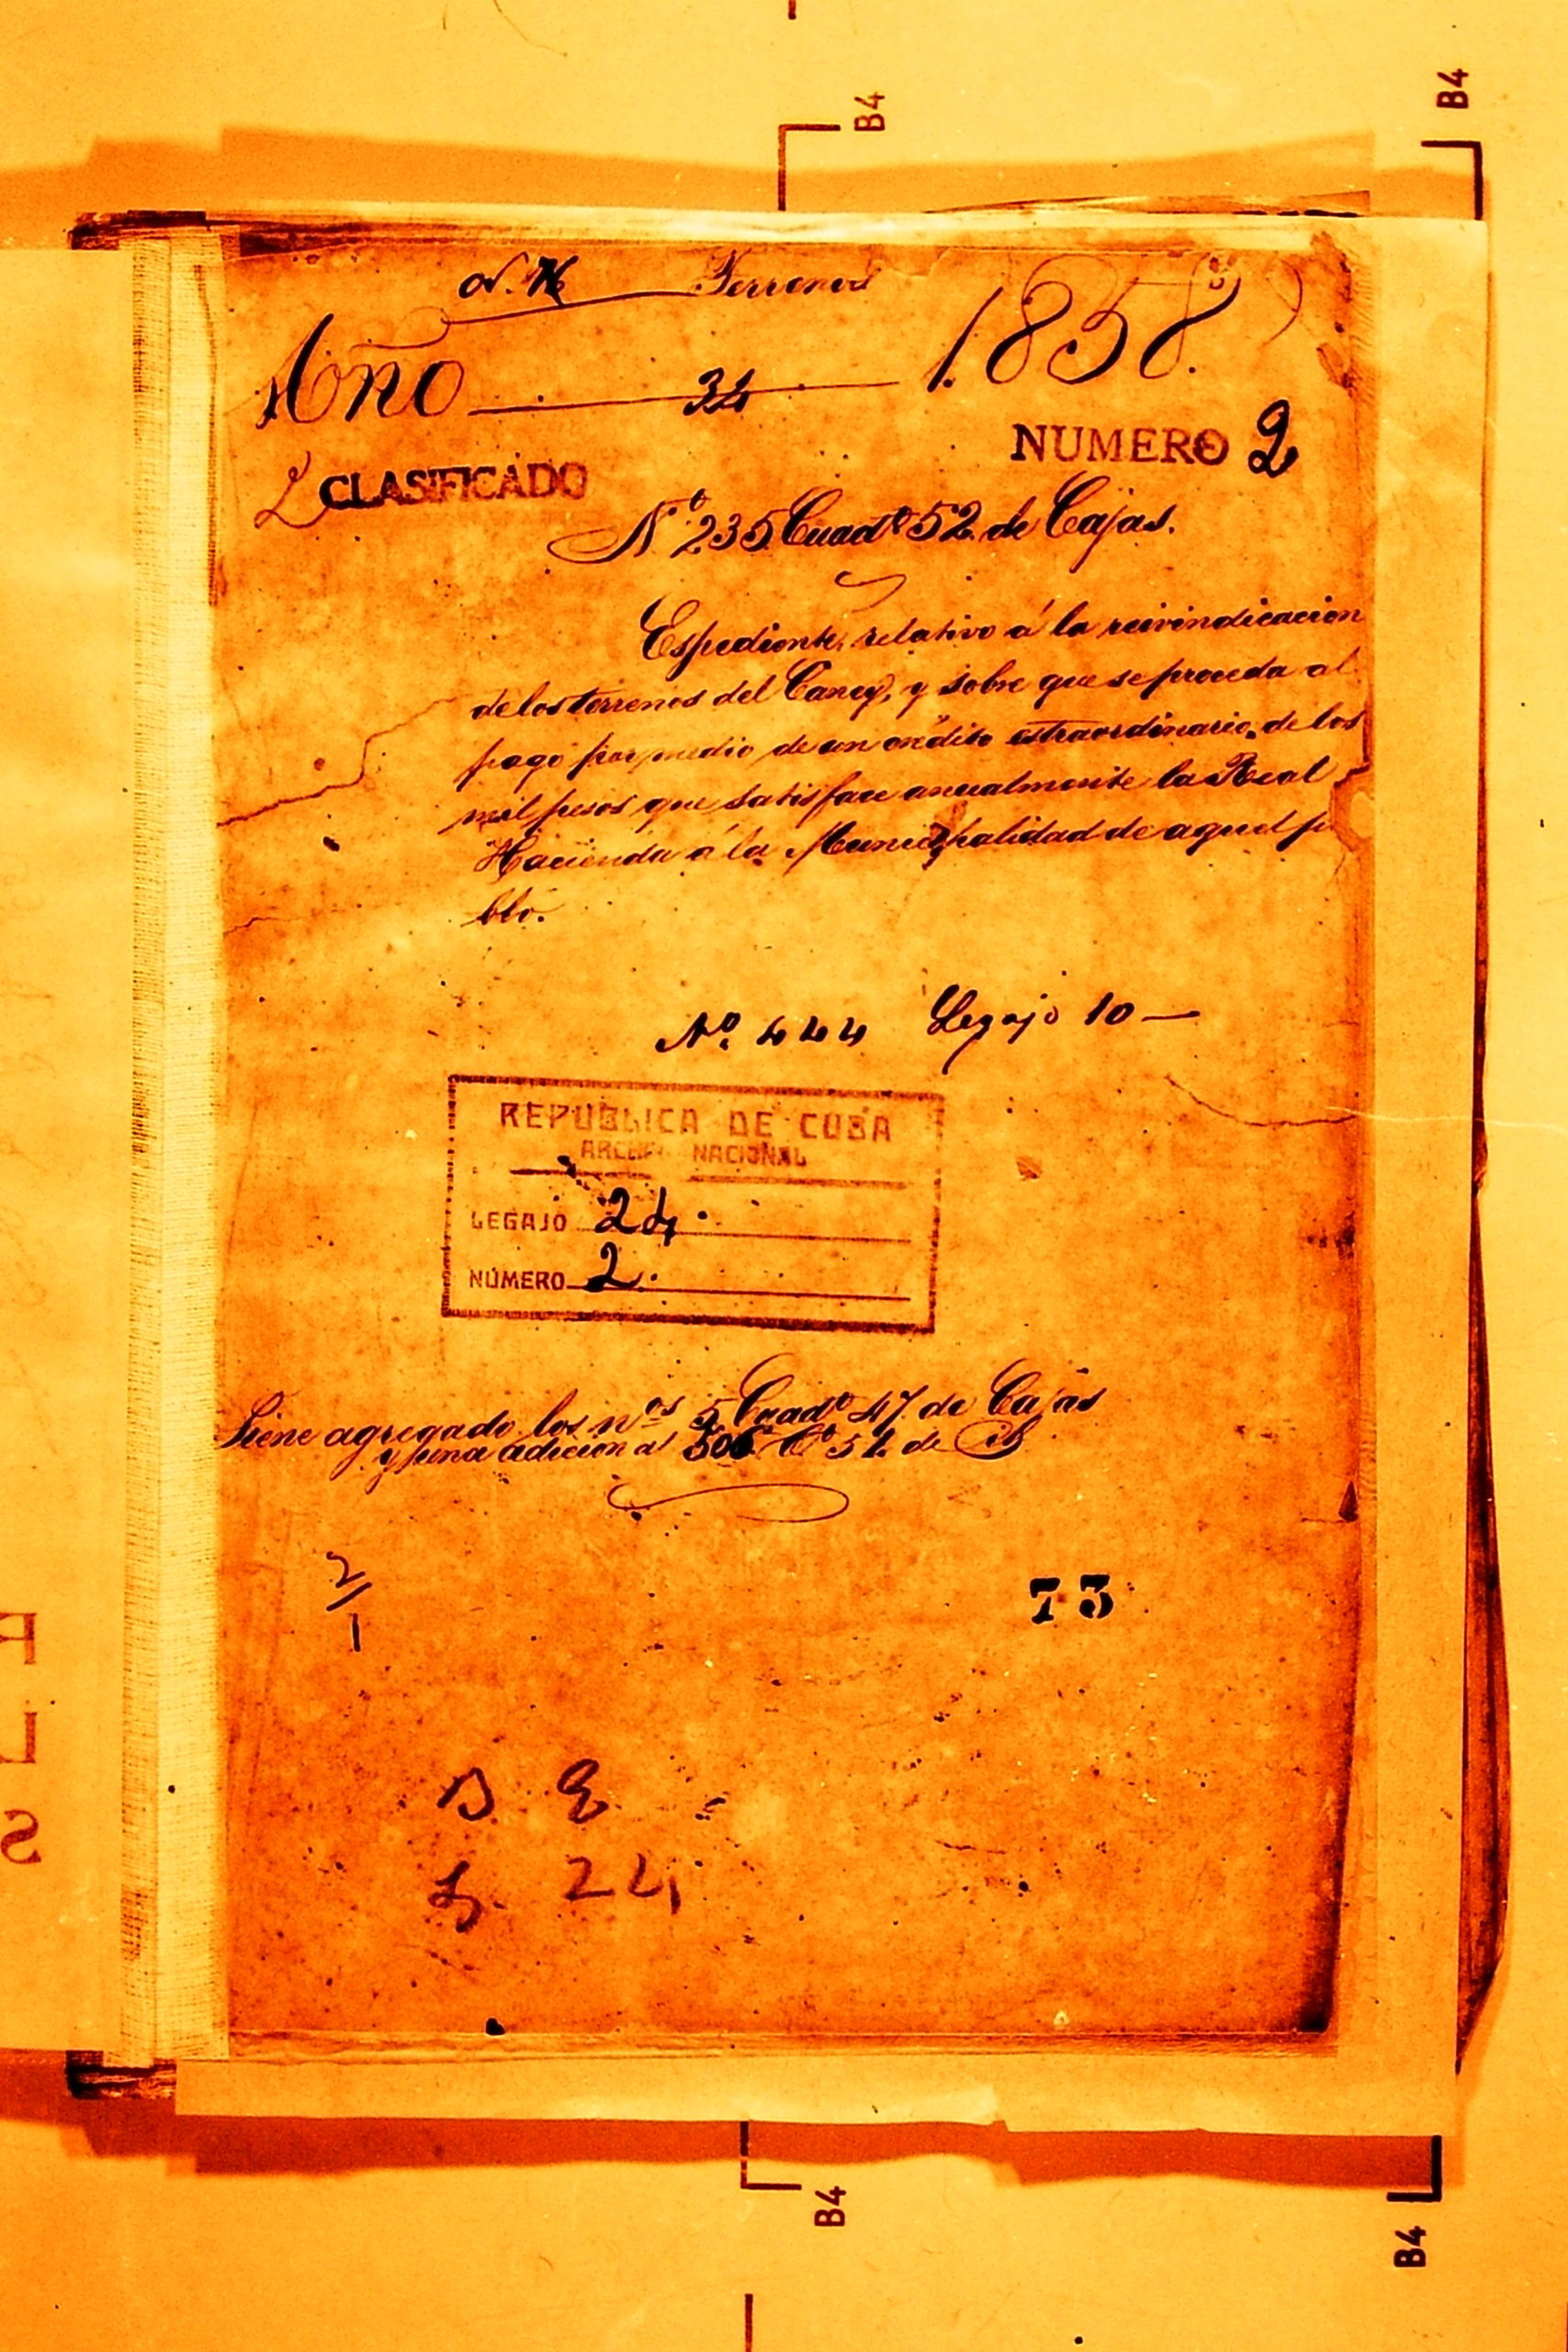 B4
B4
Terrenos
Año 34 1.858.
NUMERO 2
2 CLASIFICADO
Nº 235 Cuadº 52 de Cajas.
Espediente, relativo á la reivindicacion
de los terrenos del Caney, y sobre que se proceda al
pago por medio de un crédito estraordinario, de los
mil pesos que satisface anualmente la Real
Hacienda á la Municipalidad de aquel pu
blo.
Nº 444 Legajo 10—
REPUBLICA DE CUBA
NACIONAL
LEGAJO 24.
NÚMERO 2.
Tiene agregado los nºs 5 Cuadº 47 de Cajas
y una adicion al 506 Cº 52 de
2/1
73
L. 24
B4
B4